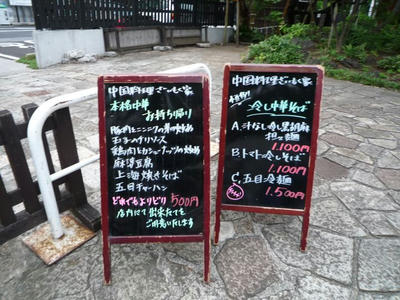 中国料理ざーさい家
本格中華
お持ち帰り
豚肉とニンニクの芽の炒め
玉子のチリソース
鶏肉とカシューナッツの炒め
麻婆豆腐
上海焼きそば
五目チャーハン
どれでもよりどり500円
店内にて出来たてを
ご用意いたします
中国料理ざーさい家
冷し中華そば
A.汁なし冷し黒胡麻
担々麺
1.100円
B.トマトの冷しそば
1.100円
C.五目冷麺
1.500円